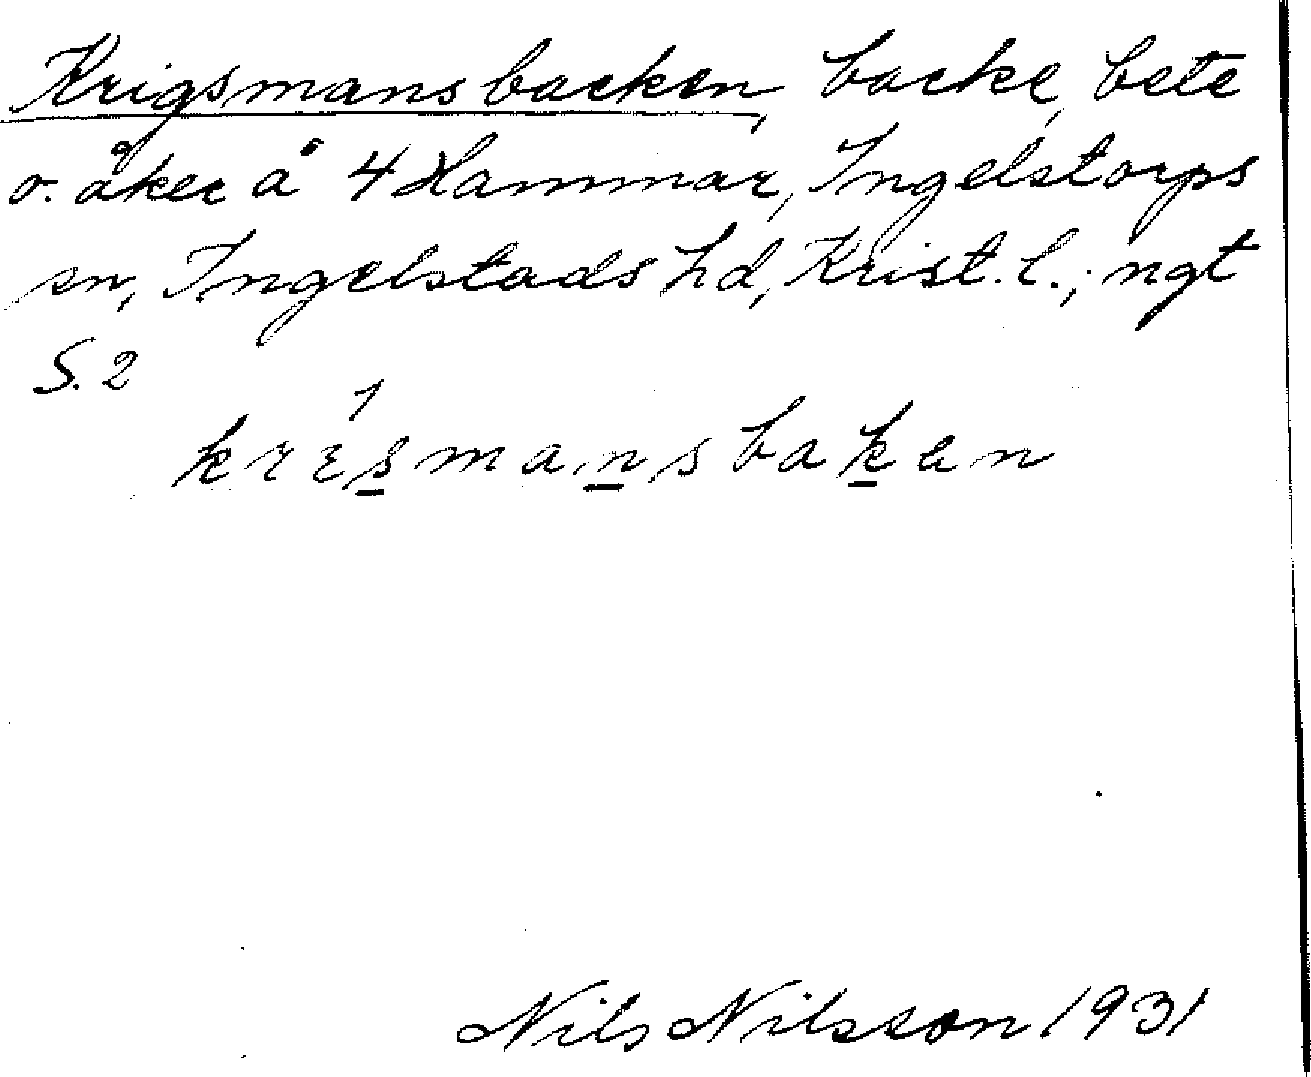 Krigsmansbacken, backe, bete
o. åker å 4 Hammar, Ingelstorps
sn, Ingelstads hd, Krist. l.; ngt
S. 2
krɛsmansbakan
Nils Nilsson 1931